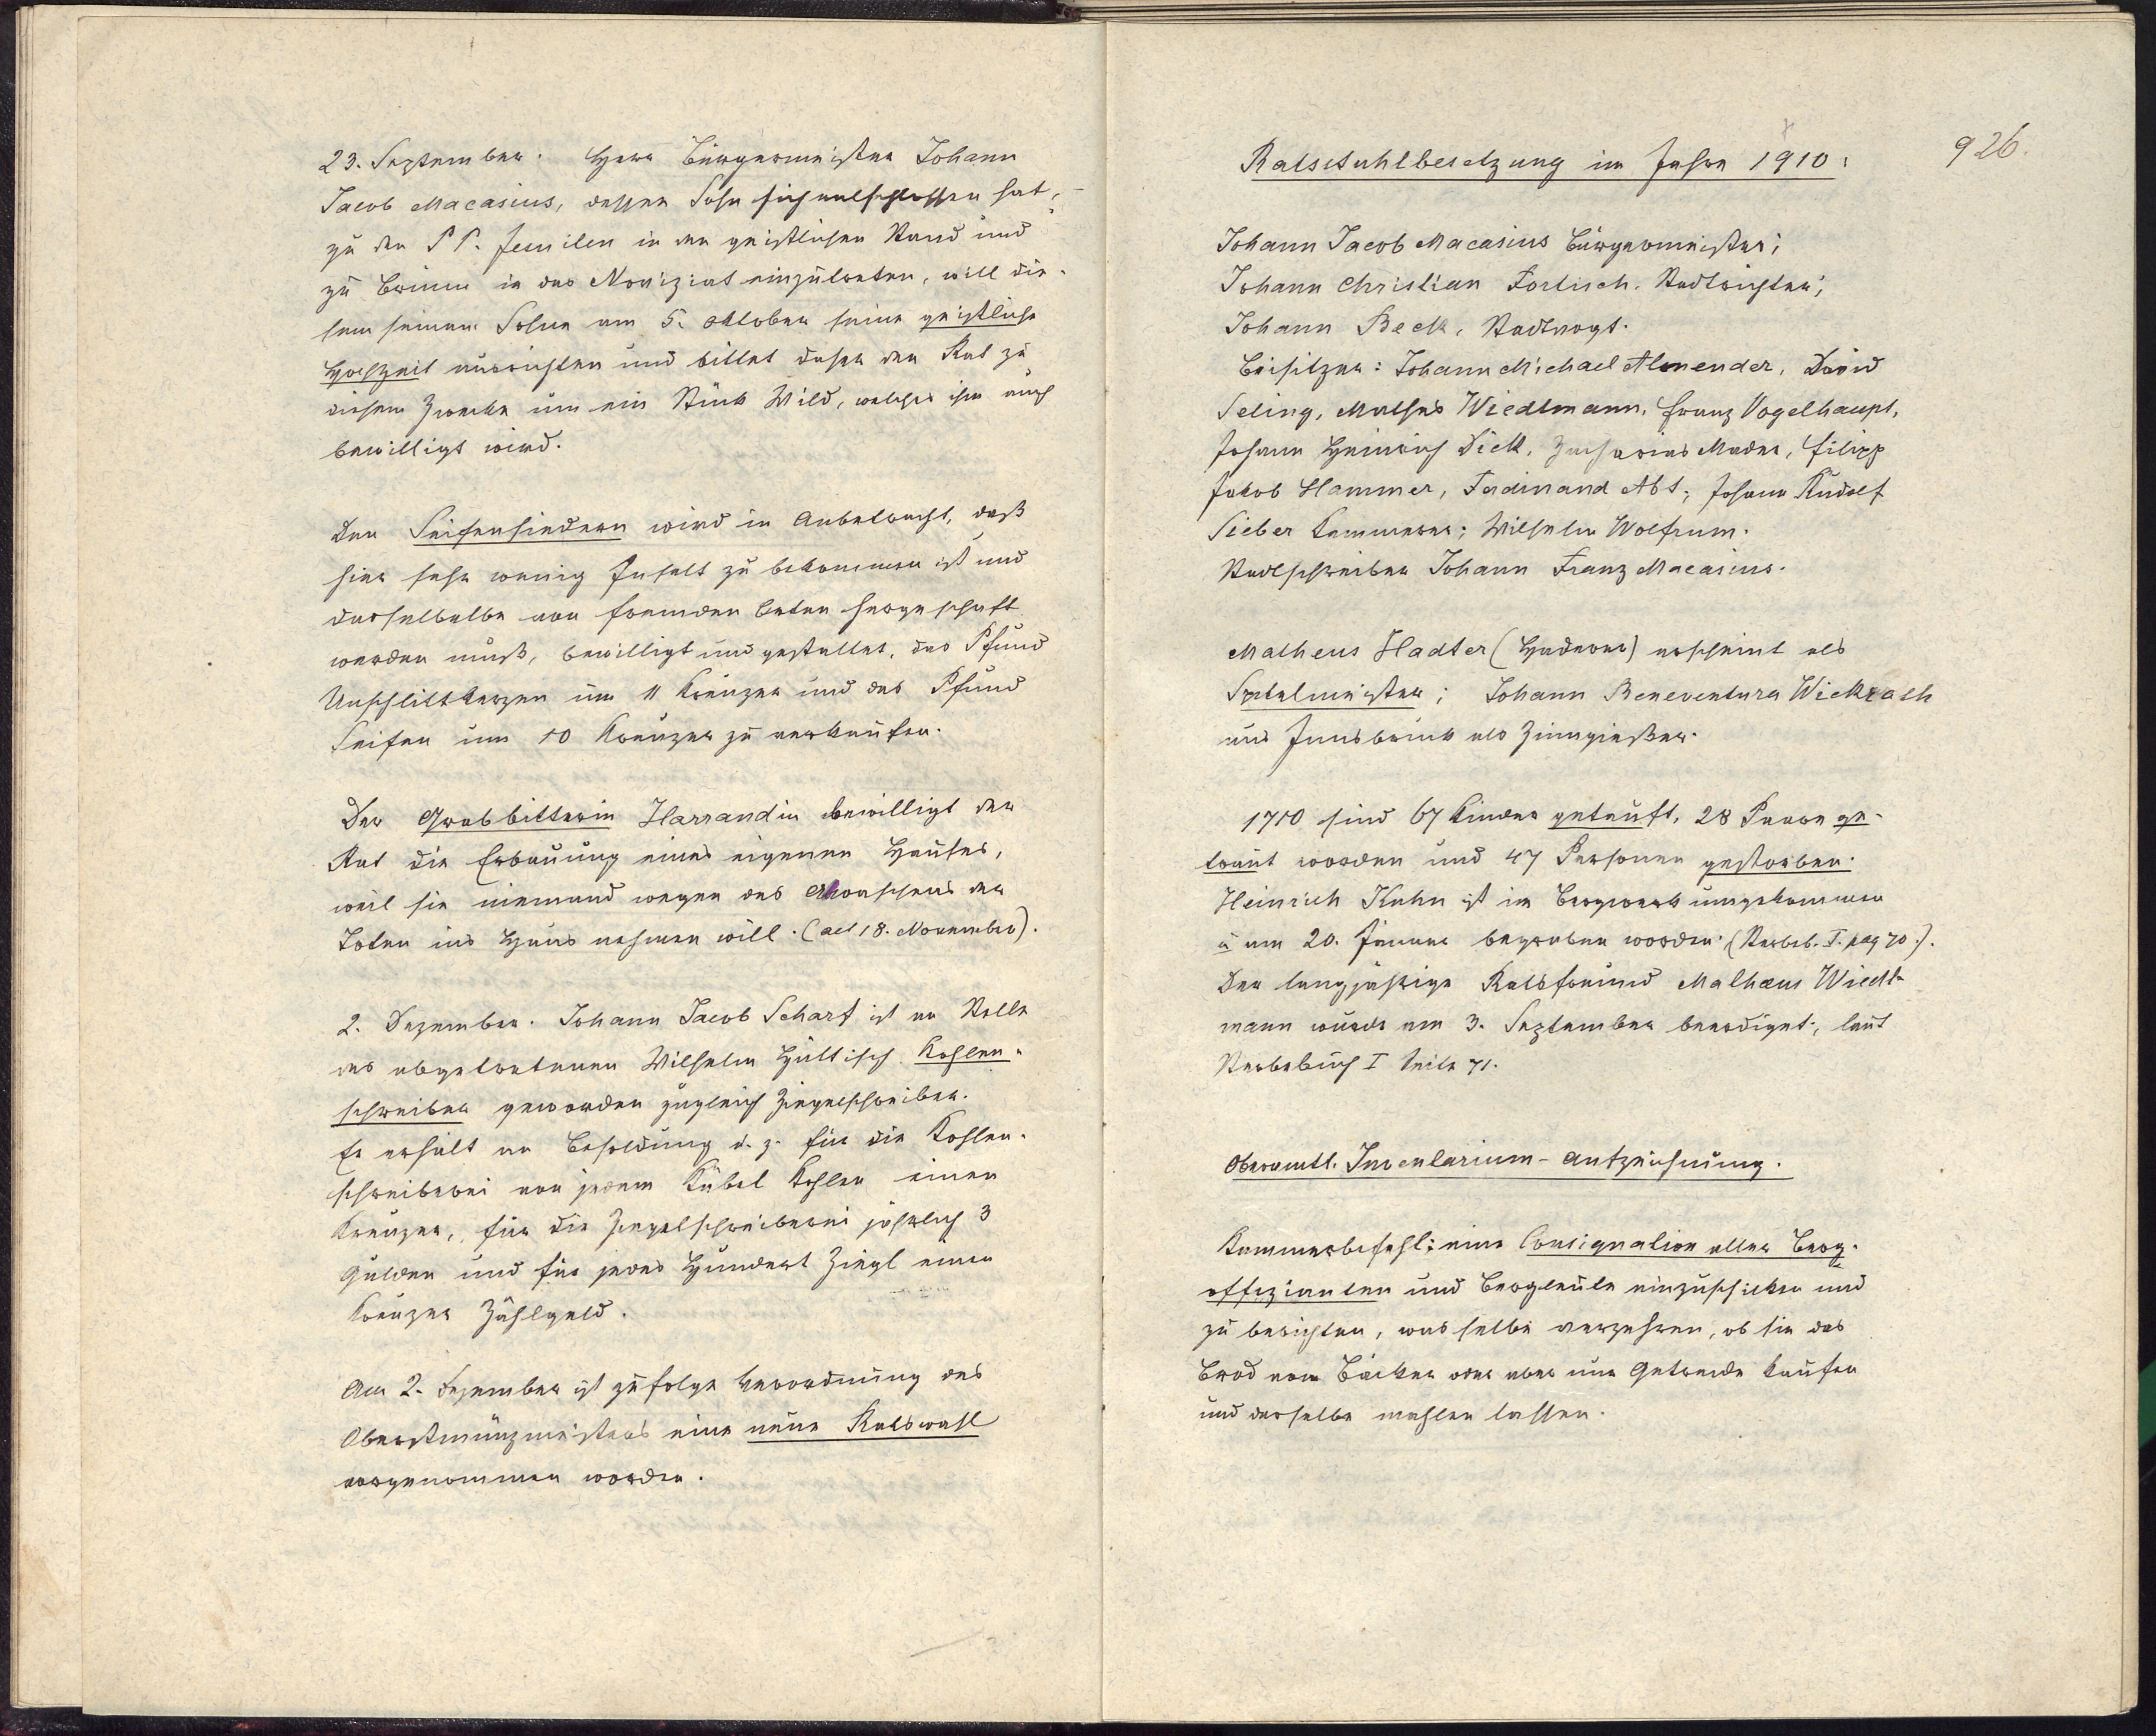 23. September. Herr Bürgermeister Johann
Jacob Macasius, dessen Sohn sich entschlossen hat,
zu den P P. Jesuiten in den geistlichen Stand und
zu Brünn in das Noviziat einzutreten, will die-
sem seinem Sohne am 5. Oktober seine geistliche
Hochzeit ausrichten und bittet daher den Rat zu
diesem Zwecke um ein Stück Wild, welches ihm auch
bewilligt wird.
Den Seifensiedern wird in Anbetracht, daß
hier sehr wenig Inselt zu bekommen ist und
dasselbe von fremden Orten hergeschafft
werden muß, bewilligt und gestattet, das Pfund
Unschlittkerzen um 11 Kreuzer und das Pfund
Seifen um 10 Kreuzer zu verkaufen.
Der Grabbitterin Harrandin bewilligt der
Rat die Erbauung eines eigenen Hauses,
weil sie niemand wegen des Abwaschens der
Toten ins Haus nehmen will. (ad 18. November).
2. Dezember. Johann Jacob Scharf ist an Stelle
des abgetretenen Wilhelm Hüttisch Kohlen-
schreiber geworden zugleich Ziegelschreiber.
Er erhält an Besoldung d. z. für die Kohlen-
schreiberei von jedem Kübel Kohlen einen
Kreuzer, für die Ziegelschreiberei jährlich 3
Gulden und für jedes Hundert Ziegl einen
Kreuzer Zählgeld.
Am 2. Dezember ist zufolge Verordnung des
Oberstmünzmeisters eine neue Ratswahl
vorgenommen worden.
926.
Ratsstuhlbesetzung im Jahre 1910:
Johann Jacob Macasius Bürgermeister;
Johann Christian Fortisch. Stadtrichter;
Johann Beck, Stadtvogt.
Beisitzer: Johann Michael Almender, David
Seling, Mathes Wiedtmann, Franz Vogelhaupt,
Johann Heinrich Dick, Zacharias Mader, Filipp
Jakob Hammer, Ferdinand Abt; Johann Rudolf
Sieber Kammerer; Wilhelm Wolfrum.
Stadtschreiber Johann Franz Macasius.
Matheus Hadter (Haderer) erscheint als
Spitelmeister; Johann Beneventura Wickrath
aus Innsbruck als Zinngießer.
1710 sind 67 Kinder getauft, 28 Paare ge-
traut worden und 47 Personen gestorben.
Heinrich Kuhn ist im Bergwerk umgekommen
u am 20. Januar begraben worden. (Sterbeb. I. pag 70.).
Der langjährige Ratsfreund Mathæus Wiedt-
mann wurde am 3. September beerdiget, laut
Sterbebuch I Seite 71.
Oberamtl. Inventarium-Aufzeichnung.
Kammerbefehl: eine Consignation aller Berg-
offizianten und Bergleute einzuschicken und
zu berichten, was selbe verzehren, ob sie das
Brod vom Bäcker oder aber nur Getreide kaufen
und dasselbe mahlen lassen.